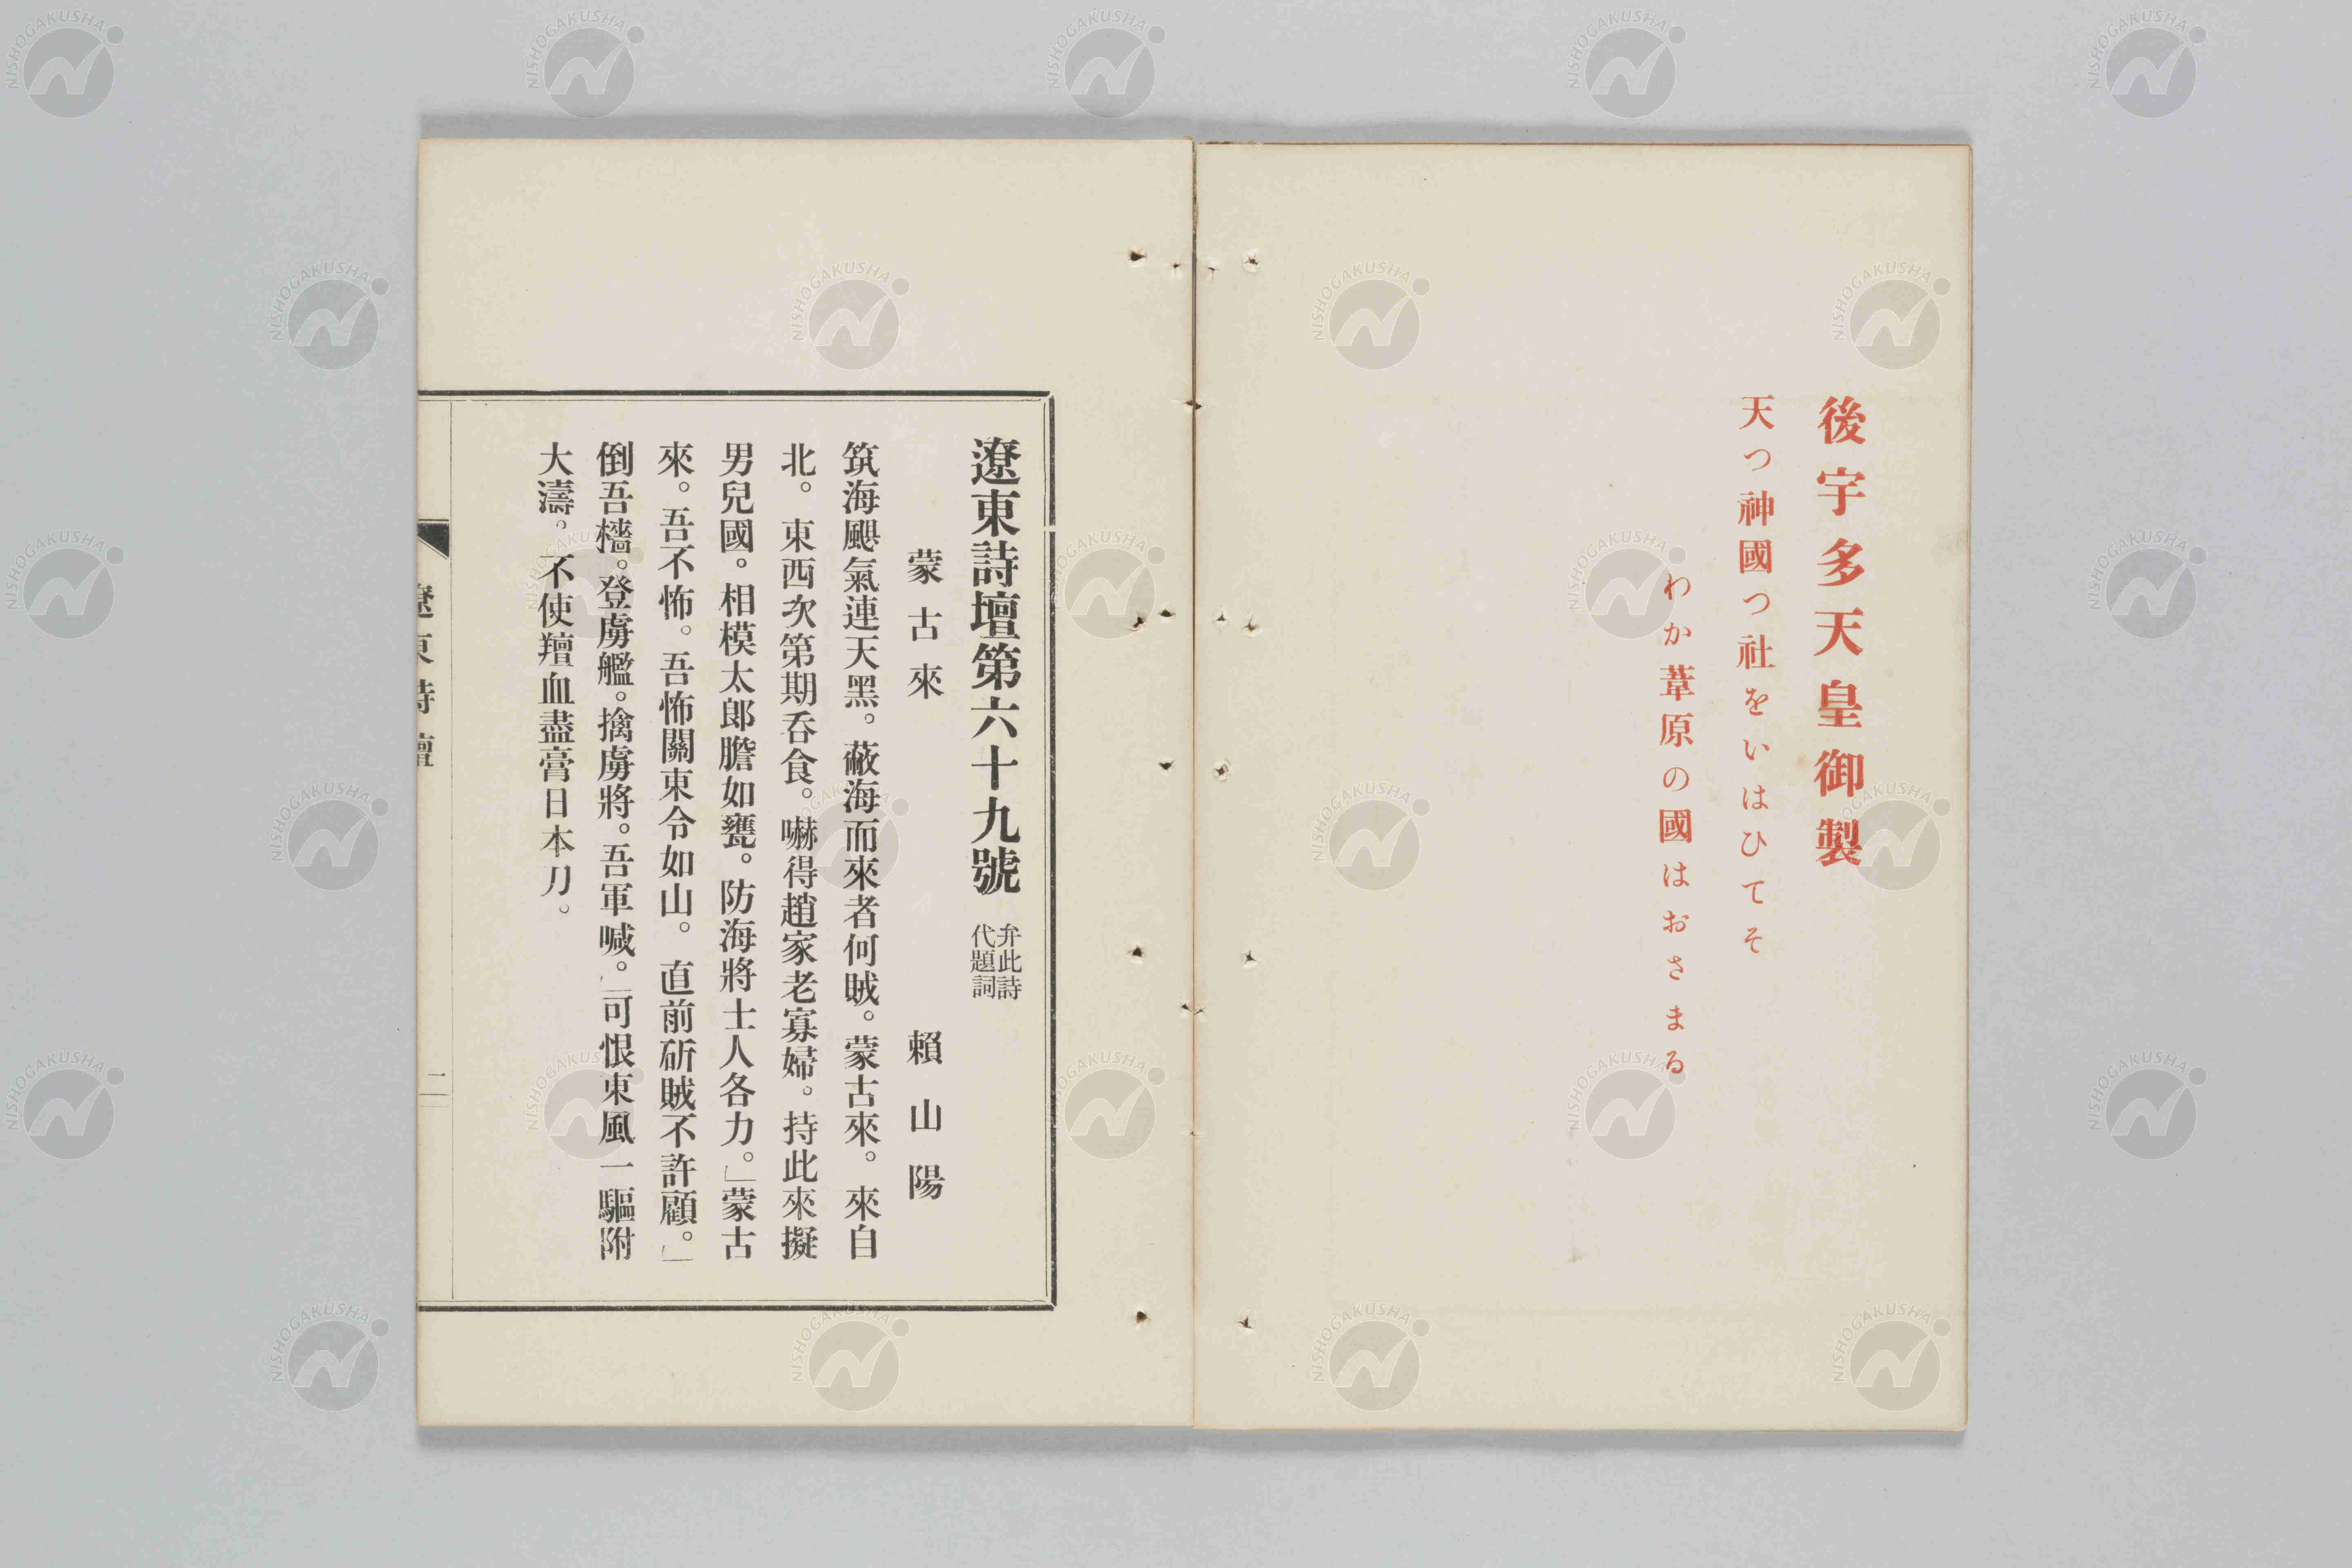 後宇多天皇御製
天つ神國つ社をいはひてそ
わか葦原の國はおさまる
遼東詩壇第六十九號
弁此詩
代題詞
蒙古來 賴山陽
筑海颶氣連天黑。蔽海而來者何賊。蒙古來。來自
北。東西次第期呑食。嚇得趙家老寡婦。持此來擬
男兒國。相模太郎膽如甕。防海將士人各力。」蒙古
來。吾不怖。吾怖關東令如山。直前斫賊不許顧。」
倒吾檣。登虜艦。擒虜將。吾軍喊。」可恨東風一驅附
大濤。不使羶血盡膏日本刀。
遼東詩壇
二
NISHOGAKUSHA